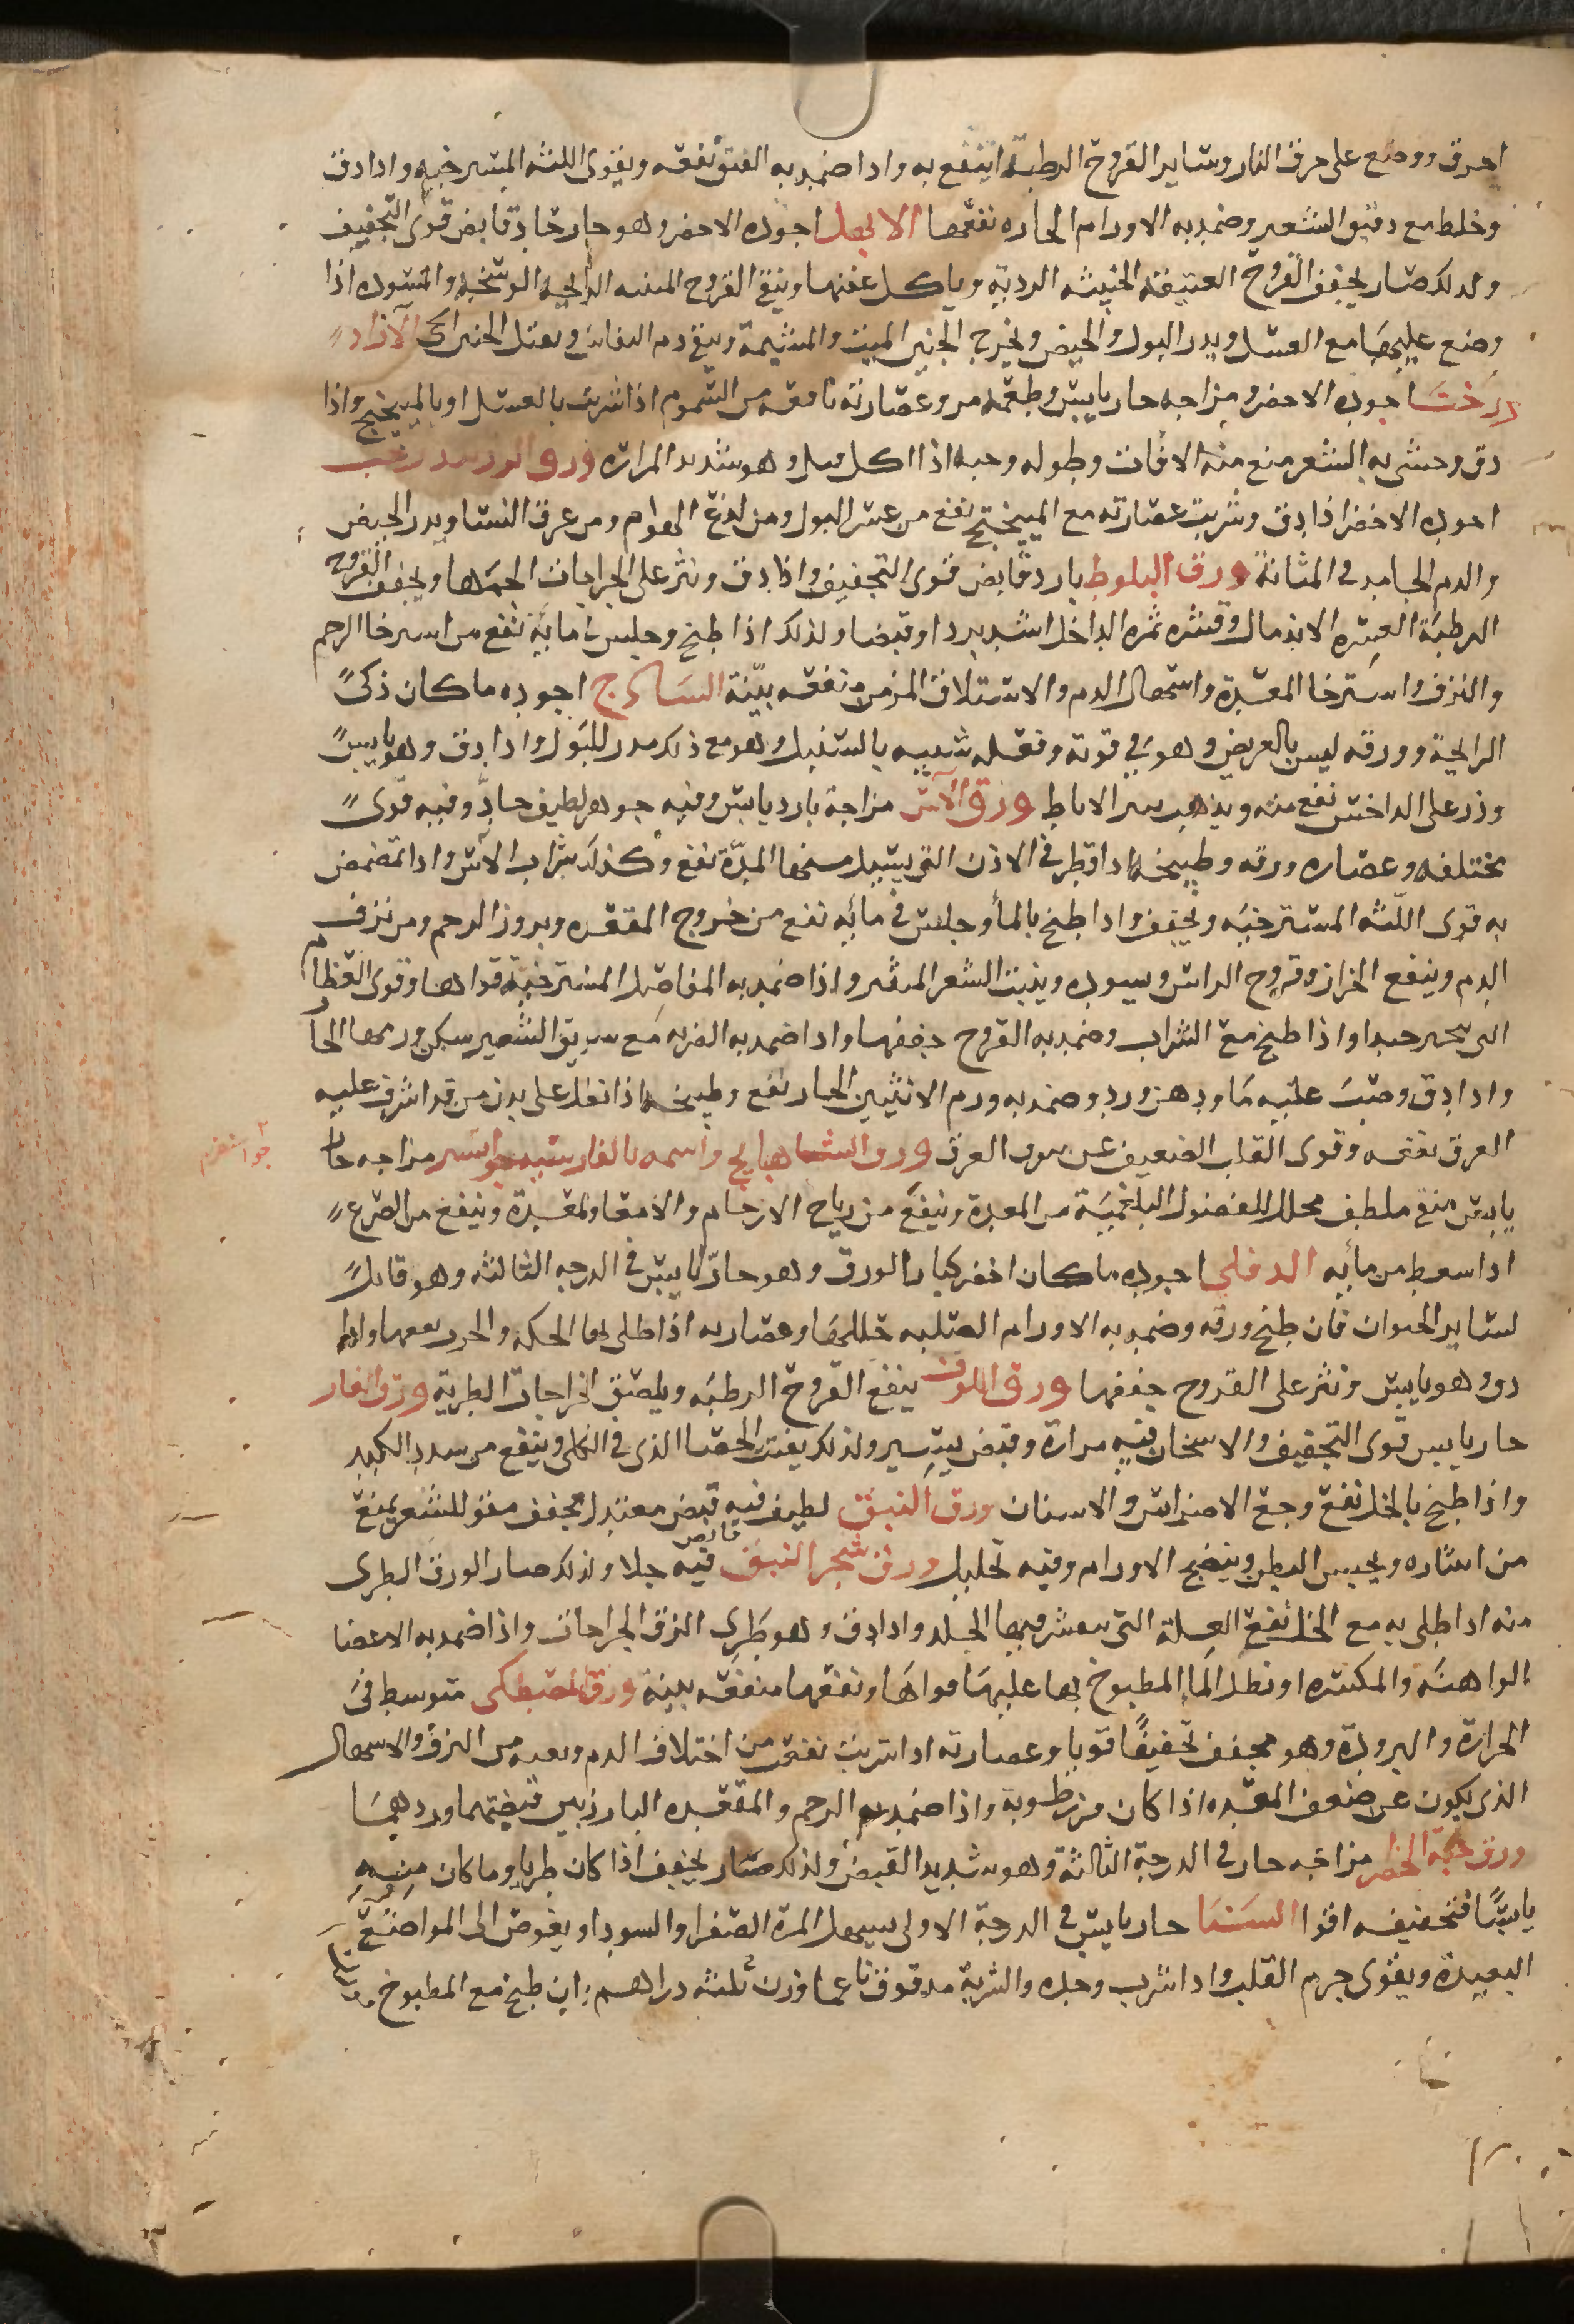 احرق ووضع على حرق النار وساير القروح الرطبة انتفع به واذا ضمد به الفتق نفعه ويقوى اللثه المسترخيه واذا دق
وخلط مع دقيق الشعير وضمد به الاورام الحاره نفعها الابهل اجوده الاخضر وهو حار حاد قابض قوى التجفيف
ولذلك صار يجفف القروح العتيقة الخبيثه الرديه وياكل عفنها وينقى القروح المنتنه الرايحه الوسخه والمسوده اذا
وضع عليها مع العسل ويدر البول والحيض ويخرج الجنين الميت والمشيمة وينقى دم النفاس ويقتل الجنين الحى الآزاد
درخت اجوده الاخضر ومزاجه حار يابس وطعمه مر وعصارته نافعه من السموم اذا شربت بالعسل او بالميبختج واذا
دق وحشى به الشعر منع منه الافات وطوله وحبه اذا اكل قتل وهو شديد المراره ورق
اجوده الاخضر اذا دق وشربت عصارته مع الميبختج نفع من عسر البول ومن لدغ الهوام ومن عرق النسا ويدر الحيض
والدم الجامد في المثانة ورق البلوط بارد قابض قوى التجفيف واذا دق ونثر على الجراحات الحمها ويجفف القروح
الرطبة العسره الاندمال وقشره ثمره الداخل اشد بردا وقبضا ولذلك اذا طبخ وجلس فى مايه نفع من استرخا الرحم
والنزف واسترخا المعدة واسهال الدم والاستطلاق المزمن منفعه بينة الساذج اجوده ما كان ذكى
الرايحة وورقه ليس بالعريض وهو في قوته وفعله شبيه بالسنبل وهو مع ذلك مدر للبول واذا دق وهو يابس
وذر على الداخس نفع منه ويذهب نتن الاباط ورق الآس مزاجه بارد يابس وفيه جوهر لطيف حاد وفيه قوى
مختلفه وعصاره ورقه وطبيخه اذا قطر في الاذن التي يسيل منها المدة نفع وكذلك شراب الآس واذا تمضمض
به قوى اللثه المسترخيه ويجفف واذا طبخ بالماء وجلس في مائه نفع من خروج المقعده وبروز الرحم ومن نزف
الدم وينفع الحزاز وقروح الراس ويسوده وينبت الشعر المنتثر واذا ضمد به المفاصل المسترخية قواها وقوى العظام
التى واذا طبخ مع الشراب وضمد به القروح جففها واذا ضمد به مع سويق الشعير سكن ورمها الحار
واذا دق وصب عليه ماء ودهن ورد وضمد به ورم الانثيين الحار نفع وطبيخه اذا نطل على بدن من قد اشرف عليه
العرق نفعه وقوى القلب الضعيف عن العرق ورق الشاهبابج واسمه بالفارسيه مزاجه حار
يابس منق ملطف محلل للفضول البلغمية من المعدة وينفع من رياح الارحام والامعا والمعدة وينفع من الصرع
اذا سعط من مائه الدفلى اجوده ما كان اخضر كبار الورق وهو حار يابس في الدرجه الثالثه وهو قاتل
لساير الحيوان فان طبخ ورقه وضمد به الاورام الصلبه حللها وعصارته اذا طلى بها الحكه والجرب نفعها واذا
دق وهو يابس ونثر على القروح جففها ورق ينفع القروح الرطبه ويلصق الجراحات الطرية ورق الغار
حار يابس قوى التجفيف والاسخان فيه مرارة وقبض يسير ولذلك يفتت الحصا الذى في الكلى وينفع من سدد الكبد
واذا طبخ بالخل نفع وجع الاضراس والاسنان ورق النبق لطيف فيه قبض معتدل مجفف مقو للشعر يمنع
من انتثاره ويحبس البطن وينضج الاورام وفيه تحليل ورق شجر النبق فيه جلا ولذلك صار الورق الطرى
منه اذا طلى به مع الخل نفع العلة التى فيها الجلد واذا دق وهو طرى الزق الجراحات واذا ضمد به الاعضا
الواهنه والمكسره او نطل الماء المطبوخ بها عليها قواها ونفعها منفعه بينة ورق المصطكى متوسط في
الحرارة والبرودة وهو مجفف تجفيفا قويا وعصارته اذا شربت نفعت من اختلاف الدم وبعده من النزف والاسهال
الذى يكون عن ضعف المعده اذا كان من رطوبة واذا ضمد به الرحم والمقعده البارزين قبضتهما وردهما
ورق حبة الخضرا مزاجه حار في الدرجة الثالثة وهو شديد القبض ولذلك صار يجفف اذا كان طريا وما كان منه
يابسا فتجفيفه اقوا السنا حار يابس في الدرجة الاولى يسهل المرة الصفرا والسودا ويغوص الى المواضع
البعيدة ويقوى جرم القلب واذا شرب وحده والشربة مدقوق ناعما وزن ثلثه دراهم ان طبخ مع المطبوخ